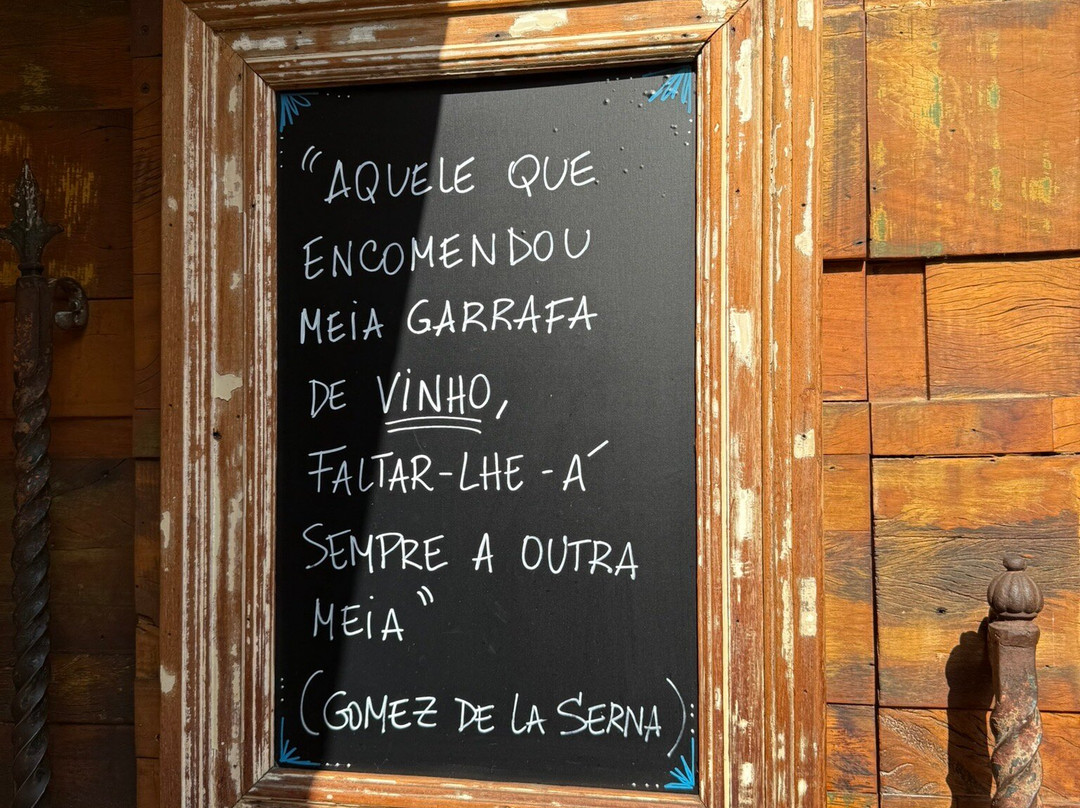 "AQUELE QUE
ENCOMENDOU
MEIA GARRAFA
DE VINHO,
FALTAR-LHE-Á
SEMPRE A OUTRA
MEIA"
(GOMEZ DE LA SERNA)